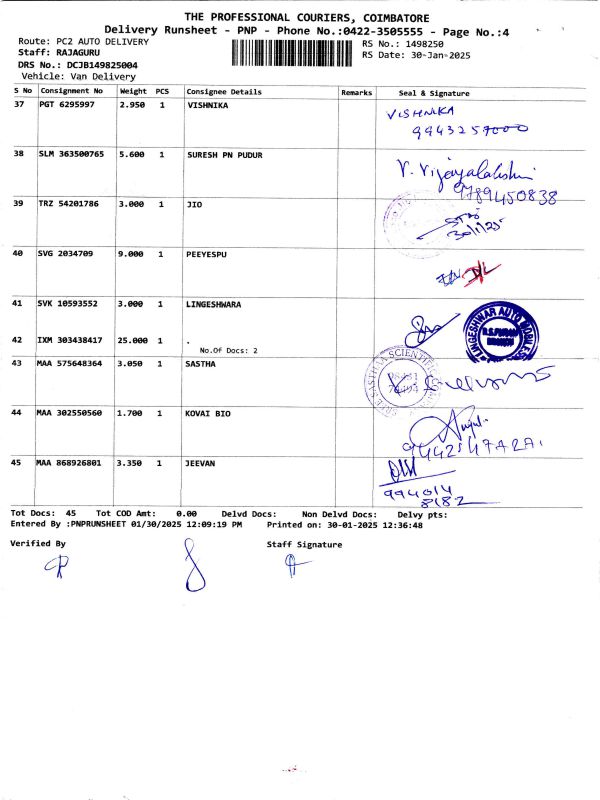 THE PROFESSIONAL COURIERS, COIMBATORE
Delivery Runsheet - PNP - Phone No.:0422-3505555 - Page No.:4
Route: PC2 AUTO DELIVERY
RS No.: 1498250
Staff: RAJAGURU
RS Date: 30-Jan-2025
DRS No.: DCJB149825004
Vehicle: Van Delivery
S No Consignment No Weight PCS Consignee Details Remarks Seal & Signature
37 PGT 6295997 2.950 1 VISHNIKA
VISHNIKA
9943257000
38 SLM 363500765 5.600 1 SURESH PN PUDUR
V. Vijayalakshmi
9789450838
39 TRZ 54201786 3.000 1 JIO
30/1/25
40 SVG 2034709 9.000 1 PEEYESPU
41 SVK 10593552 3.000 1 LINGESHWARA
LINGESHWAR AUTO MOBILES
R.S.PURAM
42 IXM 303438417 25.000 1 .
No.Of Docs: 2
43 MAA 575648364 3.050 1 SASTHA
SREE SASTHAA SCIENTIFIC
44 MAA 302550560 1.700 1 KOVAI BIO
45 MAA 868926801 3.350 1 JEEVAN
994014
8182
Tot Docs: 45 Tot COD Amt: 0.00 Delvd Docs: Non Delvd Docs: Delvy pts:
Entered By :PNPRUNSHEET 01/30/2025 12:09:19 PM Printed on: 30-01-2025 12:36:48
Verified By Staff Signature